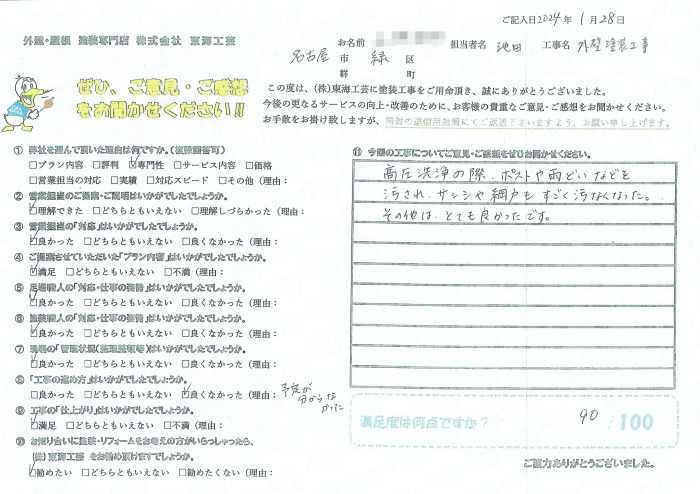 ご記入日2024年1月28日
外壁・屋根 塗装専門店 株式会社 東海工芸
お名前 担当者名 池田 工事名 外壁塗装工事
名古屋 市 緑 区
郡 町
ぜひ、ご意見・ご感想
をお聞かせください!!
この度は、(株)東海工芸に塗装工事をご用命頂き、誠にありがとうございました。
今後の更なるサービスの向上・改善のために、お客様の貴重なご意見・ご感想をお聞かせください。
お手数をお掛け致しますが、同封の返信用封筒にてご返送下さいますよう、お願い申し上げます。
① 弊社を選んで頂いた理由は何ですか。(複数回答可)
□プラン内容 □評判 ☑専門性 □サービス内容 □価格
□営業担当の対応 □実績 □対応スピード □その他(理由:
② 営業担当のご提案・ご説明はいかがでしたでしょうか。
☑理解できた □どちらともいえない □理解しづらかった(理由:
③ 営業担当の「対応」はいかがでしたでしょうか。
☑良かった □どちらともいえない □良くなかった(理由:
④ ご提案させていただいた「プラン内容」はいかがでしたでしょうか。
☑満足 □どちらともいえない □不満(理由:
⑤ 足場職人の「対応・仕事の姿勢」はいかがでしたでしょうか。
☑良かった □どちらともいえない □良くなかった(理由:
⑥ 塗装職人の「対応・仕事の姿勢」はいかがでしたでしょうか。
☑良かった □どちらともいえない □良くなかった(理由:
⑦ 現場の「管理状況(整理整頓等)はいかがでしたでしょうか。
☑良かった □どちらともいえない □良くなかった(理由:
⑧ 「工事の進め方」はいかがでしたでしょうか。
□良かった □どちらともいえない ☑良くなかった(理由: 予定が
分からな
かった
⑨ 工事の「仕上がり」はいかがでしたでしょうか。
☑満足 □どちらともいえない □不満(理由:
⑩ お知り合いに塗装・リフォームをお考えの方がいらっしゃったら、
(株)東海工芸 をお勧め頂けますでしょうか。
☑勧めたい □どちらともいえない □勧めたくない(理由:
⑪ 今回の工事についてご意見・ご感想をぜひお聞かせください。
高圧洗浄の際、ポストや雨どいなどを
汚され、サッシや網戸もすごく汚なくなった。
その他は、とても良かったです。
満足度は何点ですか? 90 /100
ご協力ありがとうございました。